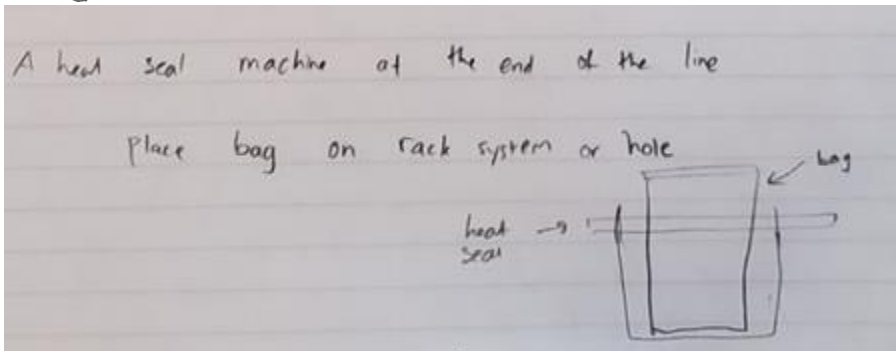 A heat seal machine at the end of the line
Place bag on rack system or hole
bag
heat
seal